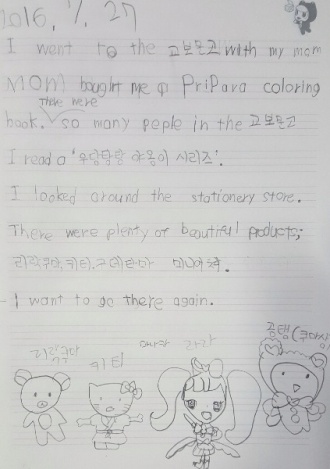 2016. 7. 27
I went to the 교보문고 with my mom
MOM bought me a PriPara coloring
There were
book. so many peple in the 교보문고
I read a '우당탕탕 야옹이 시리즈'.
I looked around the stationery store.
There were plenty of beautiful products;
리락쿠마, 키티,
- I want to go there again.
리락쿠마
키티
라라